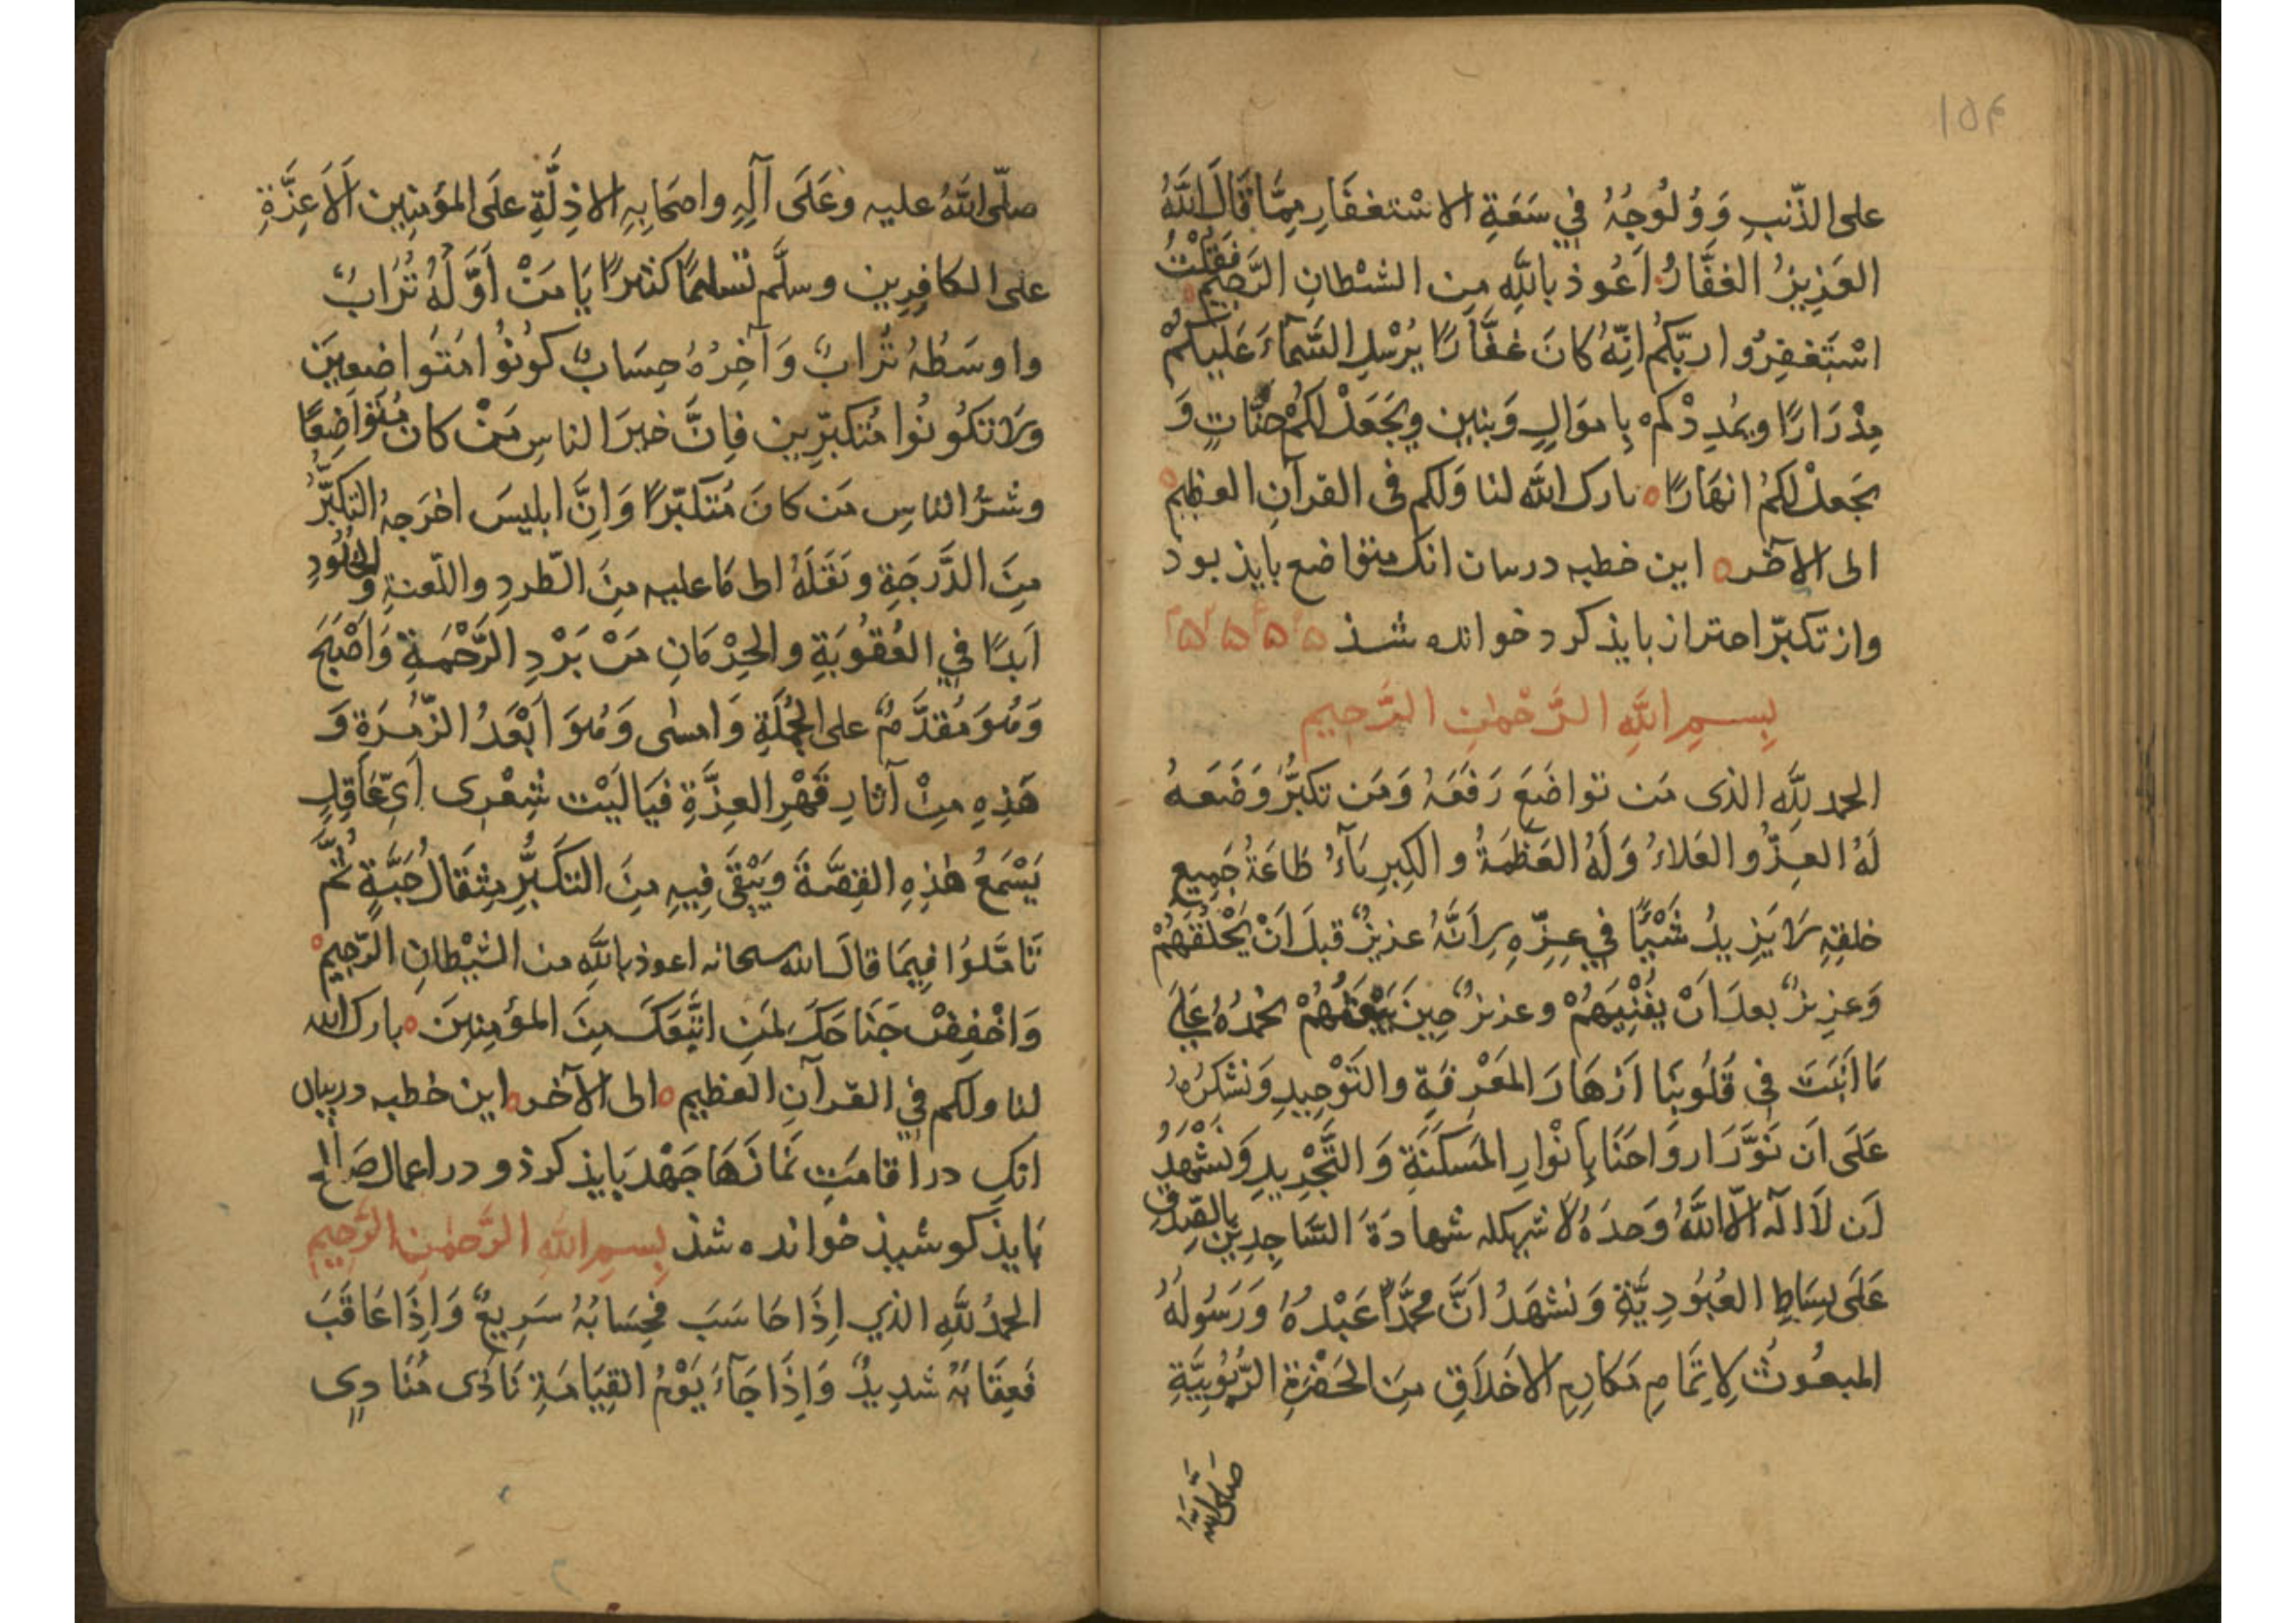 ١٥٤
على الذّنبِ وَوُلُوجُهُ في سَعَةِ الاسْتغفَارِ مِمَّا قَالَ اللهُ
العَزِيزُ الغفَّارُ اَعُوذ بِاللهِ مِن الشيْطانِ الرَّجِيمِ فَقُلْتُ
اسْتَغفِرُوا ربّكُم اِنّهُ كانَ غفَّارًا يُرْسِلِ السَّمآءَ عَلَيكُمْ
مِدْرَارًا ويُمْدِدْكُمْ بِاموَالٍ وَبنين ويَجَعَلْ لكُمْ جنَّاتٍ وَ
يَجعلْ لكُم انهَارًا ه بارك الله لنا وَلكم فى القرآنِ العظيم ه
الى الآخر ه اين خطبه در بيان انك متواضع بايذ بود
واز تكبّر احتراز بايذ كرد خوانده شذ
بِسمِ اللهِ الرَّحْمٰنِ الرَّحيمِ
الحمد للهِ الذى مَن تواضَعَ رَفَعَهُ وَمَن تكبَّرَ وَضَعَهُ
لَهُ العِزُّ والعَلاءُ وَلَهُ العَظَمَةُ والكِبرِيَآءُ طَاعَةُ جَمِيعِ
خلقِهِ لَا يَزِيدُ شَيْئًا في عِزِّهِ لِاَنَّهُ عزيزٌ قبلَ اَنْ يَخْلُقَهُمْ
وَعزِيزٌ بعدَ اَنْ يُفْنِيَهُمْ وعزيزٌ حِينَ يَبْعَثُهُمْ نحمدُهُ عَلَى
مَا اَنْبَتَ فِى قُلُوبِنَا اَزهَارَ المَعْرِفَةِ والتَوْحِيدِ وَنشْكرُهُ
عَلَى اَن نَوَّرَ اروَاحَنَا بِاَنْوارِ المَسكَنَةِ وَ التَّجْرِيدِ وَنَشْهَدُ
اَن لَا الٰهَ الّا اللهُ وَحدَهُ لا شريكله شهادَةَ السَّاجِدِينَ بِالصِّدقِ
عَلَى بِسَاطِ العُبُودِيَّةِ وَنشهَدُ اَنَّ محمَّدًا عَبْدُهُ وَرَسُولُهُ
المبعُوثُ لِاِتمَامِ مَكارِمِ الاخلَاقِ مِنَ الحَضْرَةِ الرُّبُوبِيَّةِ
صَلَّى اللهُ
صلّى اللهُ عليه وعَلَى آلِهِ واصحَابِهِ الاذِلَّةِ عَلَى المؤمِنِين الاَعِزَّةِ
على الكافِرِين وسلَّم تسليمًا كثيرًا يَا مَنْ اَوَّلُهُ تُرَابٌ
واوسَطُهُ تُرَابٌ وَآخِرُهُ حِسَابٌ كُونُوا مُتَواضِعِينَ
ولَا تكُونُوا مُتكبِّرِين فاِنَّ خيرَ الناسِ مَنْ كان مُتَواضِعًا
وشرُّ الناسِ مَن كانَ مُتكبِّرًا وَاِنَّ ابليسَ اخرَجهُ التكبُّرُ
مِنَ الدَّرَجَةِ ونَقَلَهُ الى مَا عليه مِنَ الطّردِ واللّعنةِ والخُلُودِ
اَبدًا في العُقُوبَةِ والحِرْمَانِ مَنْ بَرْدِ الرَّحْمَةِ وَاَصْبَحَ
وَهُوَ مُقدَّمٌ على الجُملَةِ وَامسٰى وَهُوَ اَبْعَدُ الزّمرَةِ وَ
هَذِهِ مِنْ آثارِ قَهْرِ العِزَّةِ فَيَا لَيْت شِعْرِى اَىّ عَاقِلٍ
يَسْمَعُ هٰذِهِ القِصَّةَ ويَبْقَى فِيهِ مِنَ التكبُّرِ مِثقَالُ حَبَّةٍ ثُمَّ
تَامَّلُوا فِيمَا قالَ الله سبحانه اعوذ باللهِ من الشَّيْطانِ الرَّجِيمِ ه
وَاخْفِضْ جَنَاحَكَ لمَنِ اتَّبَعَكَ مِنَ المؤمِنِينَ ه بارك الله
لنا ولكم في القرآنِ العظيمِ ه الى الآخر ه اين خطبه در بيان
انكِ در اقامَتِ نمَازهَا جَهْد بَايذ كرذ و در اعمال صَالح
بَايذ كوشيذ خوانده شذ بِسمِ اللهِ الرَّحمٰنِ الرَّحِيمِ
الحمدُ للهِ الذي اِذَا حَاسَبَ فحِسَابُهُ سَرِيعٌ وَاِذَا عَاقَبَ
فَعِقَابُهُ شدِيدٌ وَاِذَا جَآءَ يَوْمُ القِيَامَةِ نَادٰى مُنَادِى